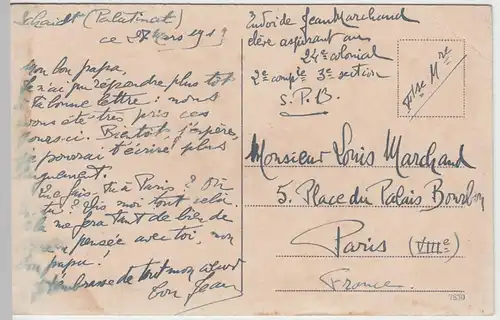 Schaidt (Palatinat)
ce 27 Mars 1919
Mon bon papa,
Je n'ai pu répondre plus tôt
à ta bonne lettre : nous
avons été très pris ces
jours-ci. Bientôt j'espère,
je pourrai t'écrire plus
longuement.
Que fais-tu à Paris ? Où
es-tu ? Dis moi tout cela
Ça me fera tant de bien de
en pensée avec toi, mon
papa !
Je t'embrasse de tout mon cœur
Ton Jean
Envoi de Jean Marchand
élève aspirant au
24e colonial
2e compie 3e section
S.P.B.
Fise Mre
Monsieur Louis Marchand
5, Place du Palais Bourbon
Paris (VIIe)
France
7830